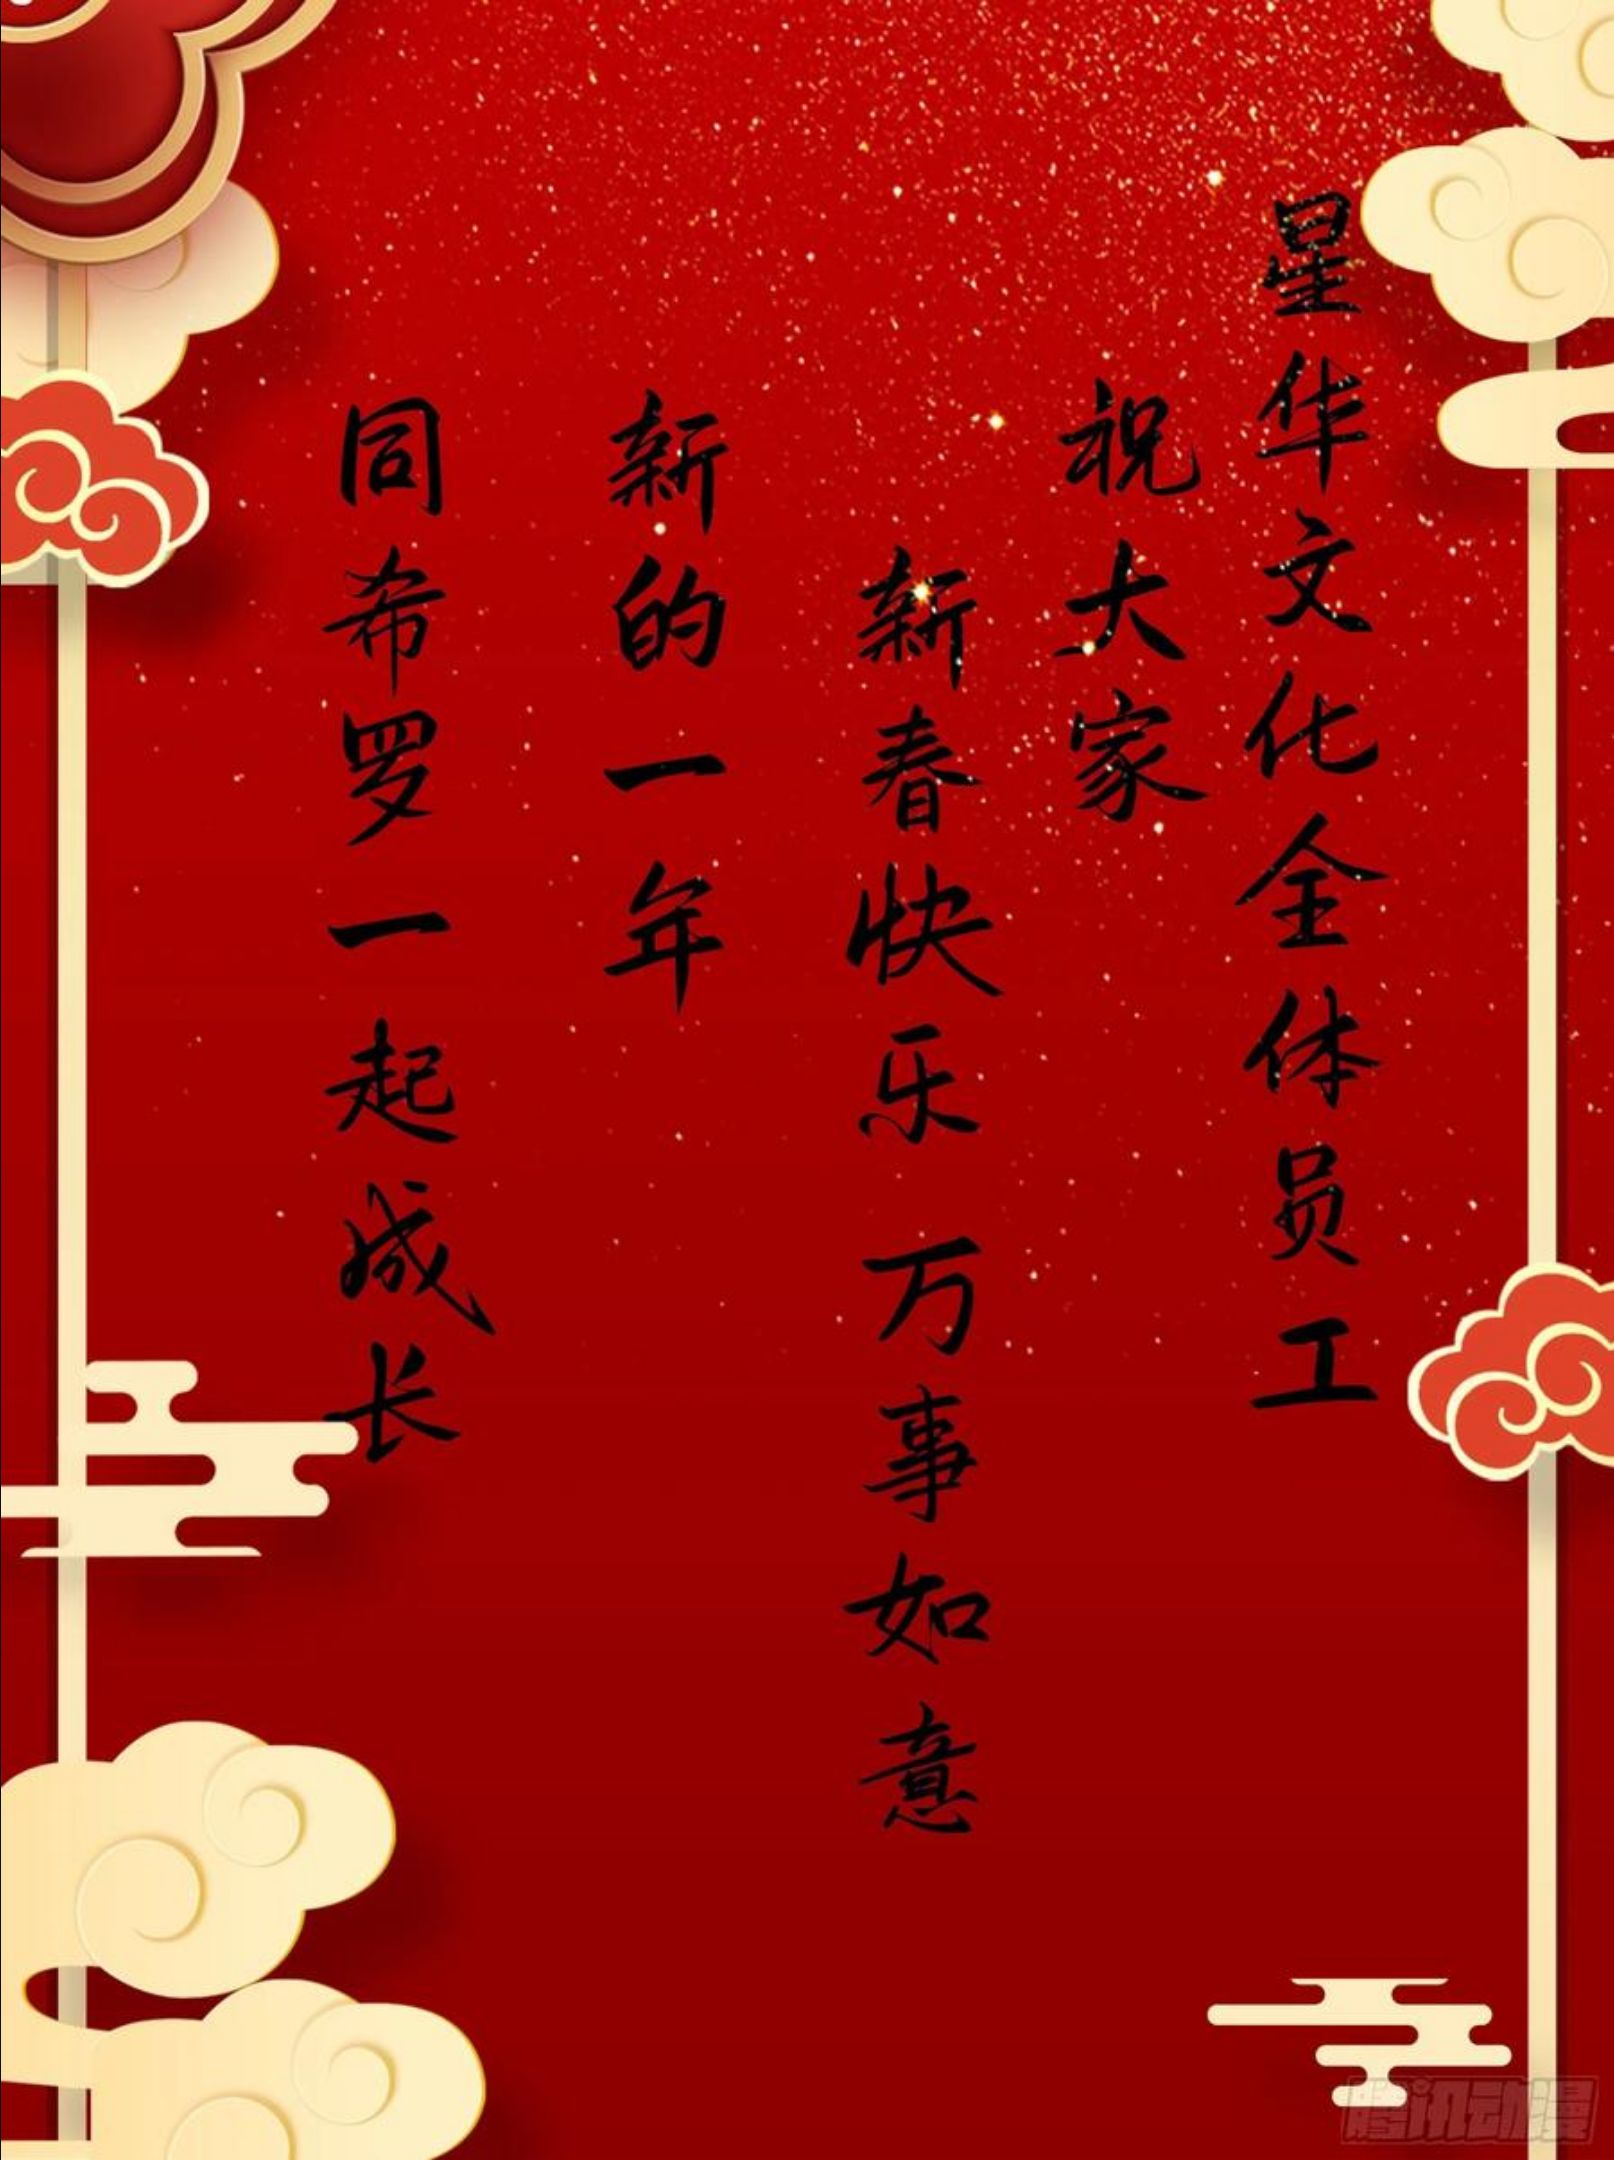 星华文化全体员工
祝大家
新春快乐 万事如意
新的一年
同希罗一起成长
腾讯动漫